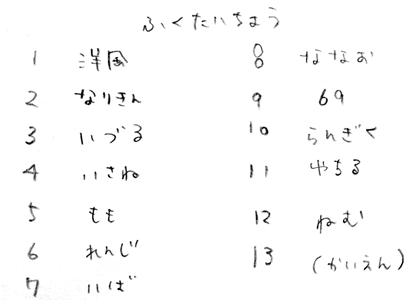 ふくたいちょう
1 洋風
2 なりきん
3 いづる
4 いさね
5 もも
6 れんじ
7 いば
8 ななお
9 69
10 らんぎく
11 やちる
12 ねむ
13 (かいえん)